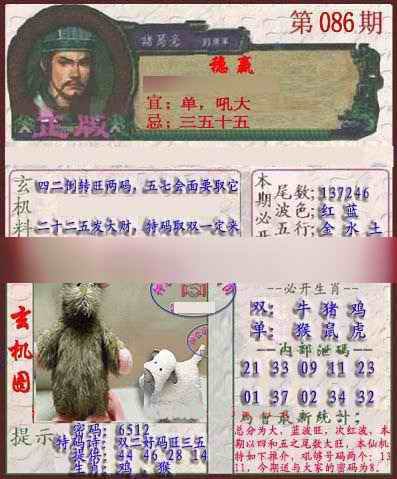 第086期
諸葛亮
稳赢
宜：单，吼大
忌：三五十五
正版
玄机料
四二倒转旺两码，五七会面要取它
二十二五发大财，特码取双一定来
本期必开
尾数：137246
波色：红 蓝
五行：金 水 土
玄机图
必开生肖
双：牛 猪 鸡
单：猴 鼠 虎
内部泄码
21 33 09 11 23
01 37 02 34 32
提示
密码：6512
特码诗：双二好码旺三五
提倍：44 46 28 14
生肖：鸡，猴
最新统计：
总分为大，蓝波旺，次红波，本
期以四和五之尾数大旺，本仙机
特如下推介，吼够号码两个：13
11，今期送与大家的密码为8。